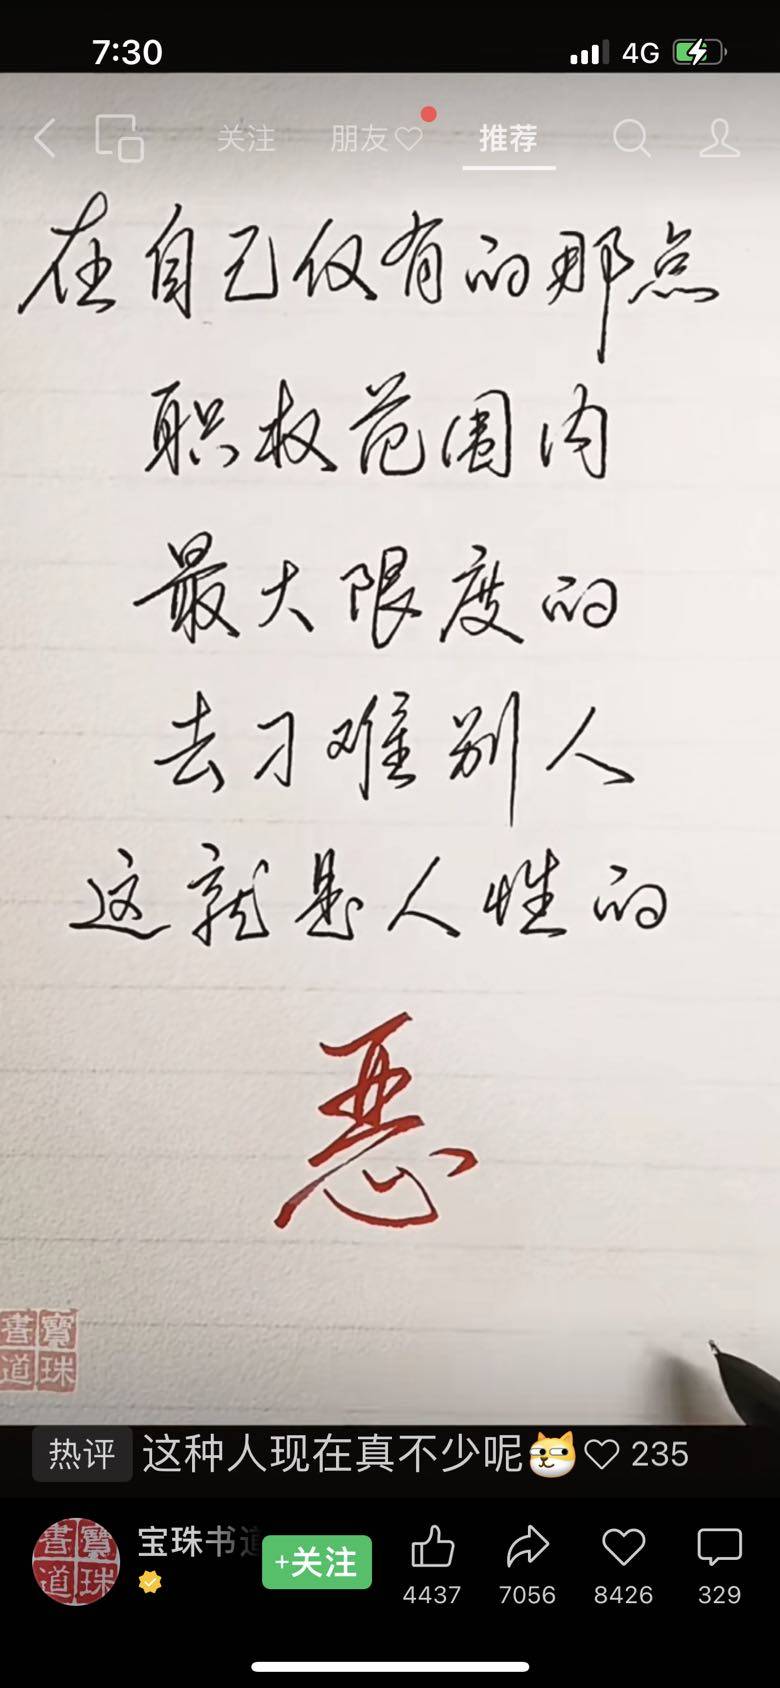 7:30
4G
关注 朋友 推荐
在自己仅有的那点
职权范围内
最大限度的
去刁难别人
这就是人性的
恶
書寶
道珠
热评 这种人现在真不少呢 235
書寶
道珠
宝珠书道
+关注
4437 7056 8426 329